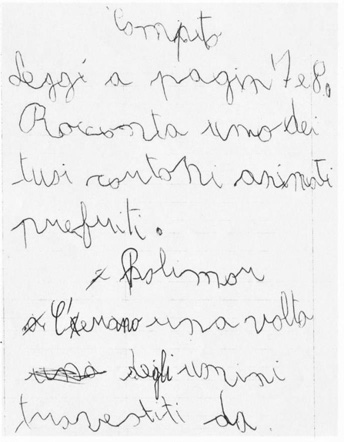 Compito
Leggi a pagin 7 e 8.
Racconta uno dei
tuoi cartoni animati
prefriti.
x Bolimon
x C'erano una volta
degli uomini
travestiti da.